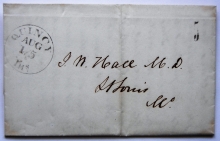 QUINCY
AUG
15
J. W. Hall M. D.
St Louis
Mo.